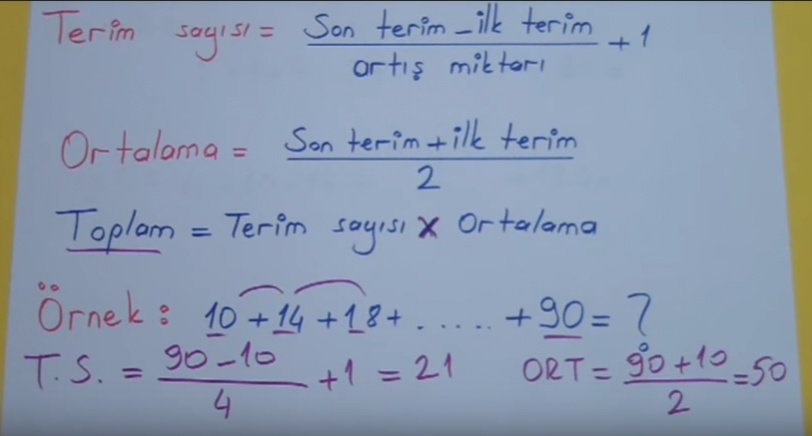 Terim sayısı = Son terim - ilk terim / artış miktarı + 1
Ortalama = Son terim + ilk terim / 2
Toplam = Terim sayısı x Ortalama
Örnek : 10 + 14 + 18 + ..... + 90 = ?
T.S. = 90 - 10 / 4 + 1 = 21 ORT = 90 + 10 / 2 = 50